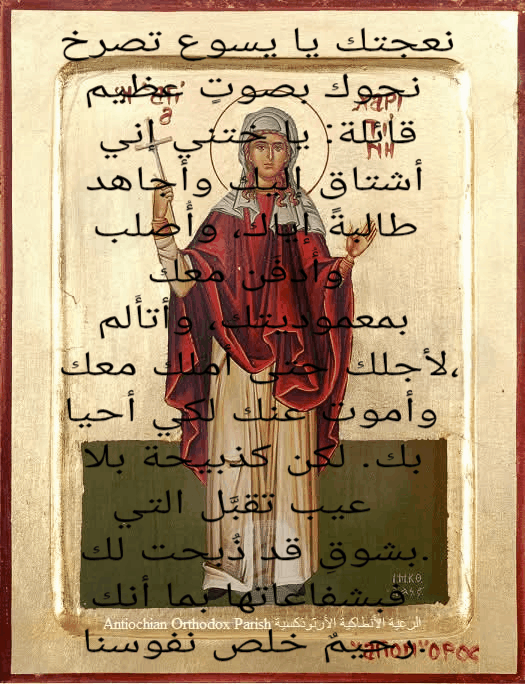 نعجتك يا يسوع تصرخ
نحوك بصوتٍ عظيم
Η ΑΓΙΑ
ΧΑΡΙΤΙΝΗ
قائلة: يا ختني إني
أشتاق إليك وأجاهد
طالبةً إياك، وأُصلب
وأُدفَن معك
بمعموديتك، وأتألم
لأجلك حتى أملك معك،
وأموت عنك لكي أحيا
بك. لكن كذبيحة بلا
عيب تقبَّل التي
بشوقٍ قد ذُبحت لك.
فبشفاعاتها بما أنك
Antiochian Orthodox Parish الرعية الأنطاكية الأرثوذكسية
رحيمٌ خلص نفوسنا.